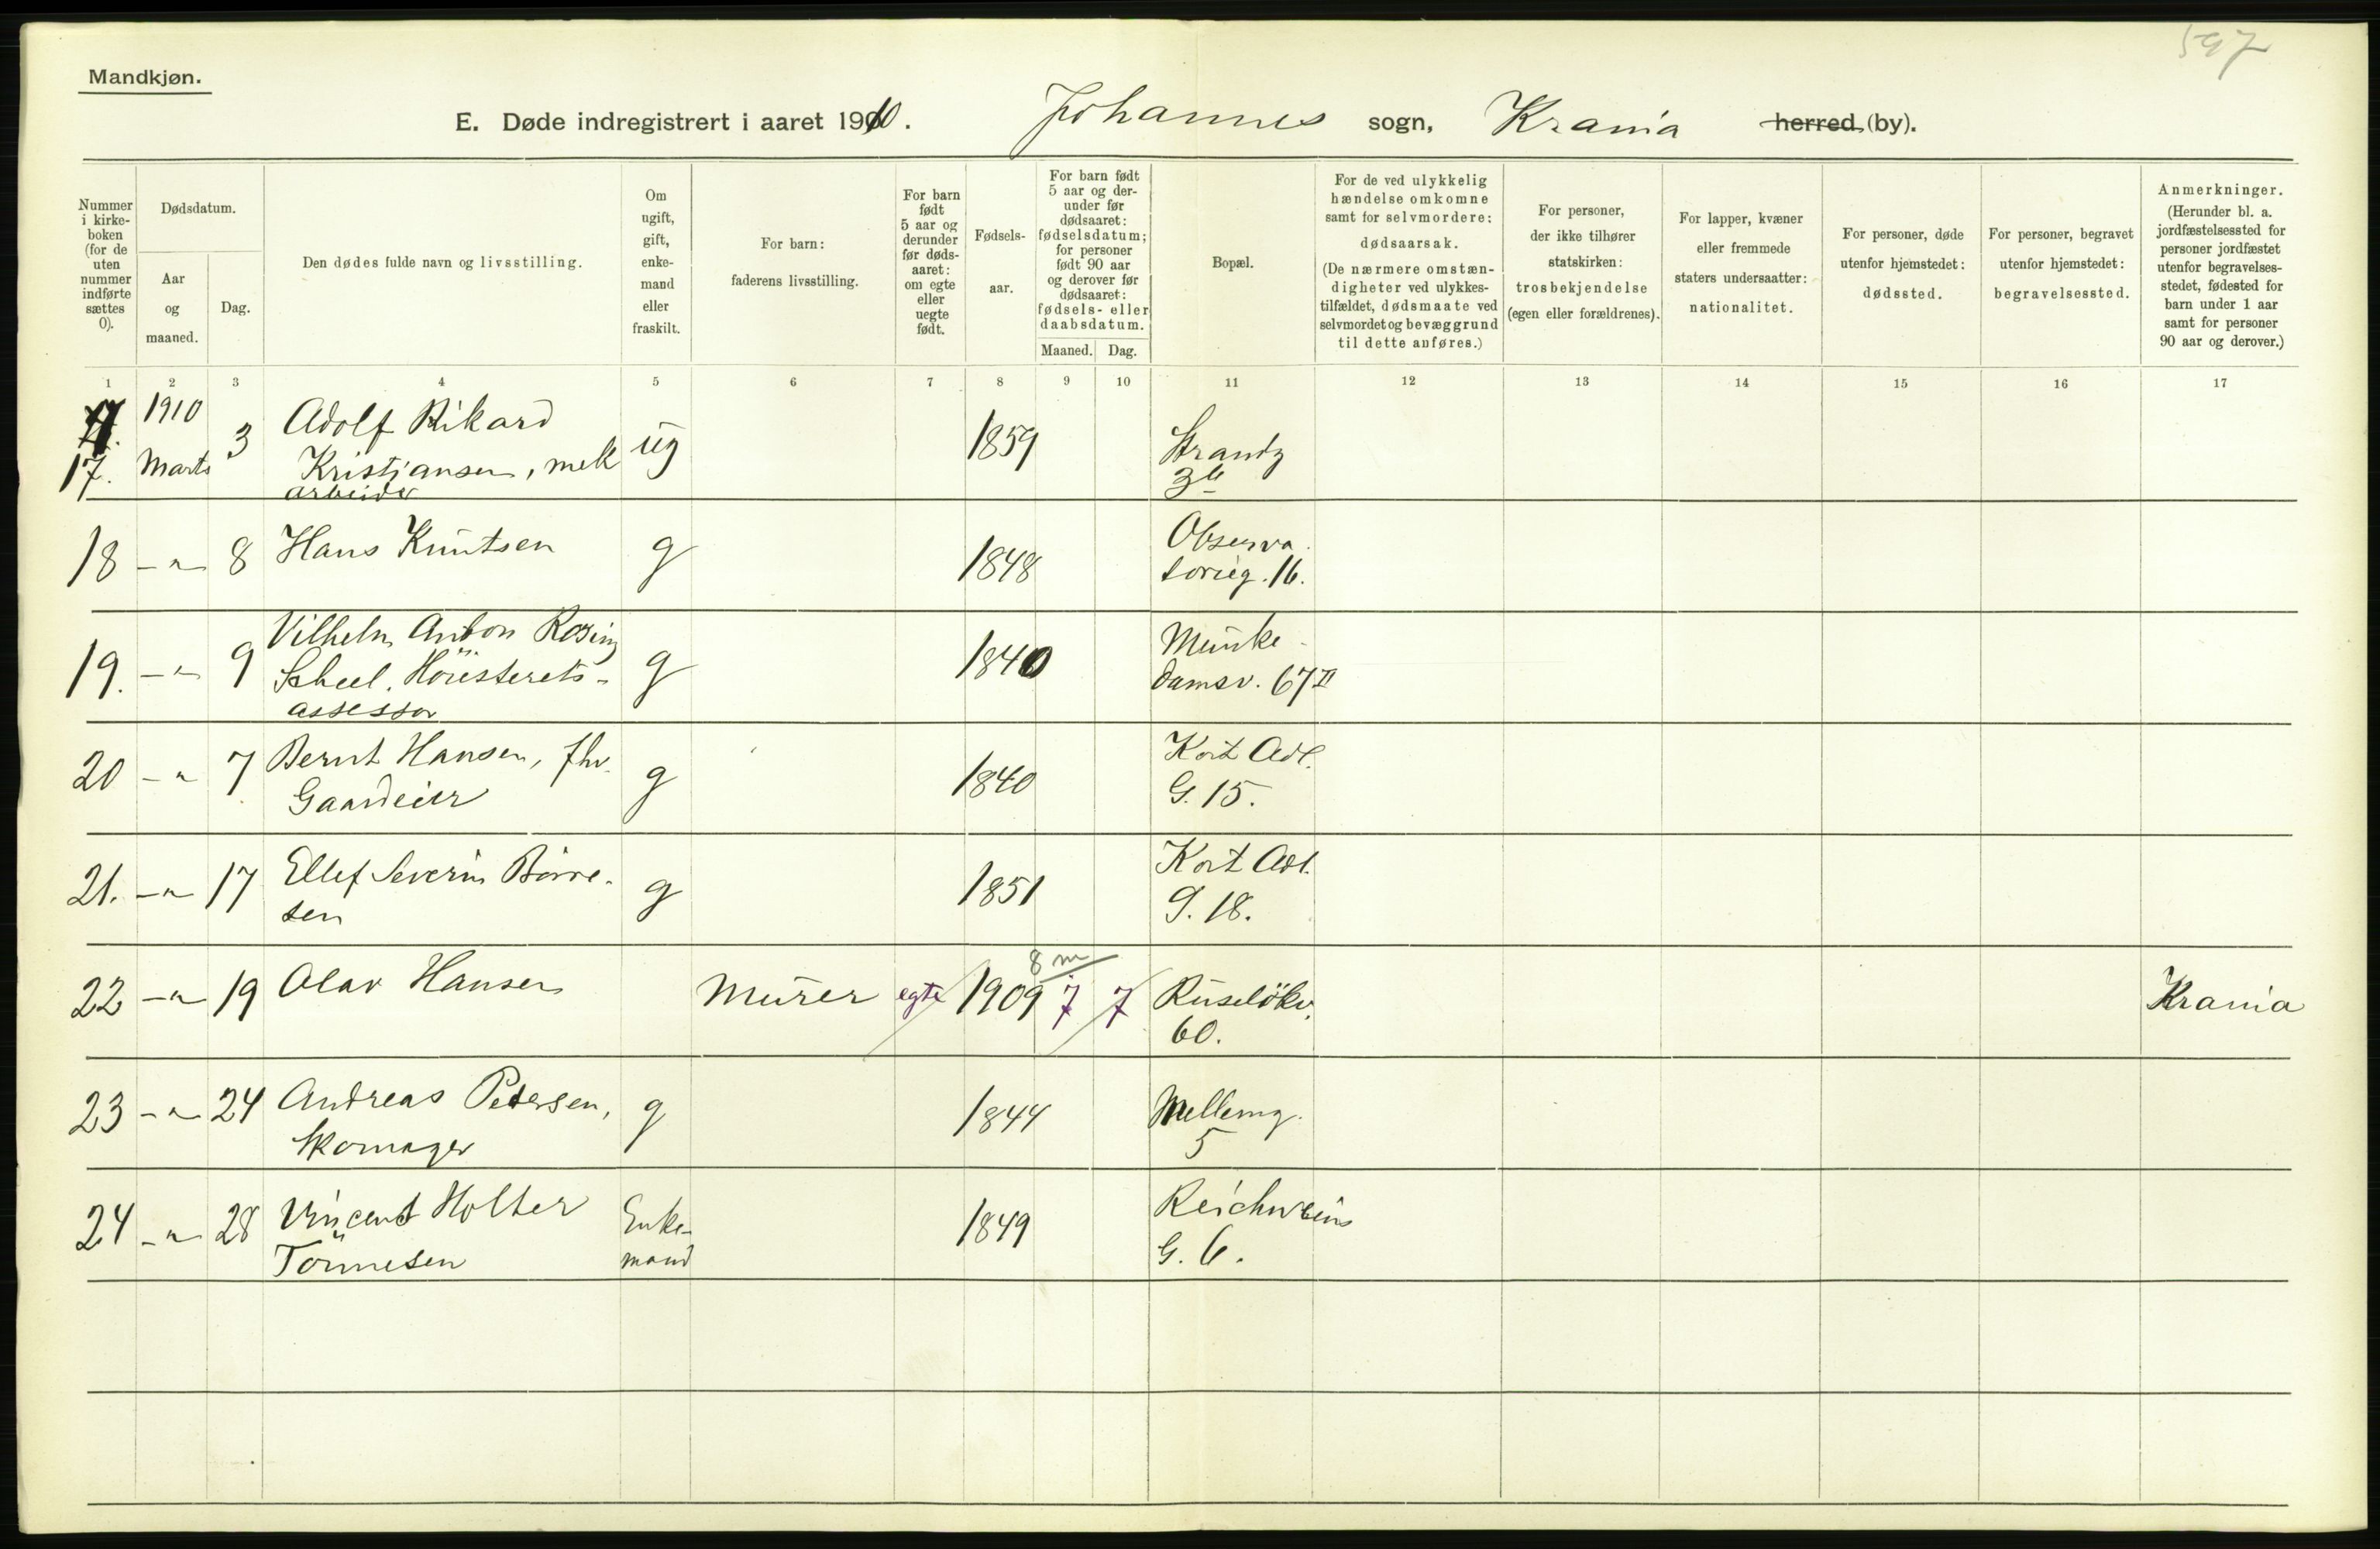 597
Mandkjøn.
E. Døde indregistrert i aaret 1910. Johannes sogn, Krania herred (by).
Nummer i kirkeboken (for de uten nummer indførte sættes 0).
Dødsdatum.
Aar og maaned.
Dag.
Den dødes fulde navn og livsstilling.
Om ugift, gift, enkemand eller fraskilt.
For barn: faderens livsstilling.
For barn født 5 aar og derunder før dødsaaret: om egte eller uegte født.
Fødselsaar.
For barn født 5 aar og derunder før dødsaaret: fødselsdatum; for personer født 90 aar og derover før dødsaaret: fødsels- eller daabsdatum.
Maaned. Dag.
Bopæl.
For de ved ulykkelig hændelse omkomne samt for selvmordere: dødsaarsak. (De nærmere omstændigheter ved ulykkestilfældet, dødsmaate ved selvmordet og bevæggrund til dette anføres.)
For personer, der ikke tilhører statskirken: trosbekjendelse (egen eller forældrenes).
For lapper, kvæner eller fremmede staters undersaatter: nationalitet.
For personer, døde utenfor hjemstedet: dødssted.
For personer, begravet utenfor hjemstedet: begravelsessted.
Anmerkninger. (Herunder bl. a. jordfæstelsessted for personer jordfæstet utenfor begravelsesstedet, fødested for barn under 1 aar samt for personer 90 aar og derover.)
1 2 3 4 5 6 7 8 9 10 11 12 13 14 15 16 17
17. 1910 Marts 3 Adolf Rikard ug 1859 Strandg
Kristiansen, mek
arbeider
18 -"- 8 Hans Knutsen g 1848 Observa
torieg. 16.
19. -"- 9 Vilhelm Anton Rosing g 1840 Munke-
Scheel. Höiesterets- damsv. 67 II
assessor
20 -"- 7 Bernt Hansen, fhv. g 1840 Kort Adl.
Gaardeier G. 15.
21. -"- 17 Ellef Severin Börre- g 1851 Kort Adl.
sen G. 18.
8 m
22 -"- 19 Olav Hansen Murer egte 1909 7 7 Ruselökv. Krania
60.
23 -"- 24 Andreas Petersen, g 1844 Mellemg.
Skomager 5
24 -"- 28 Vincent Holter Enke- 1849 Reichweins
Tönnesen mand G. 6.